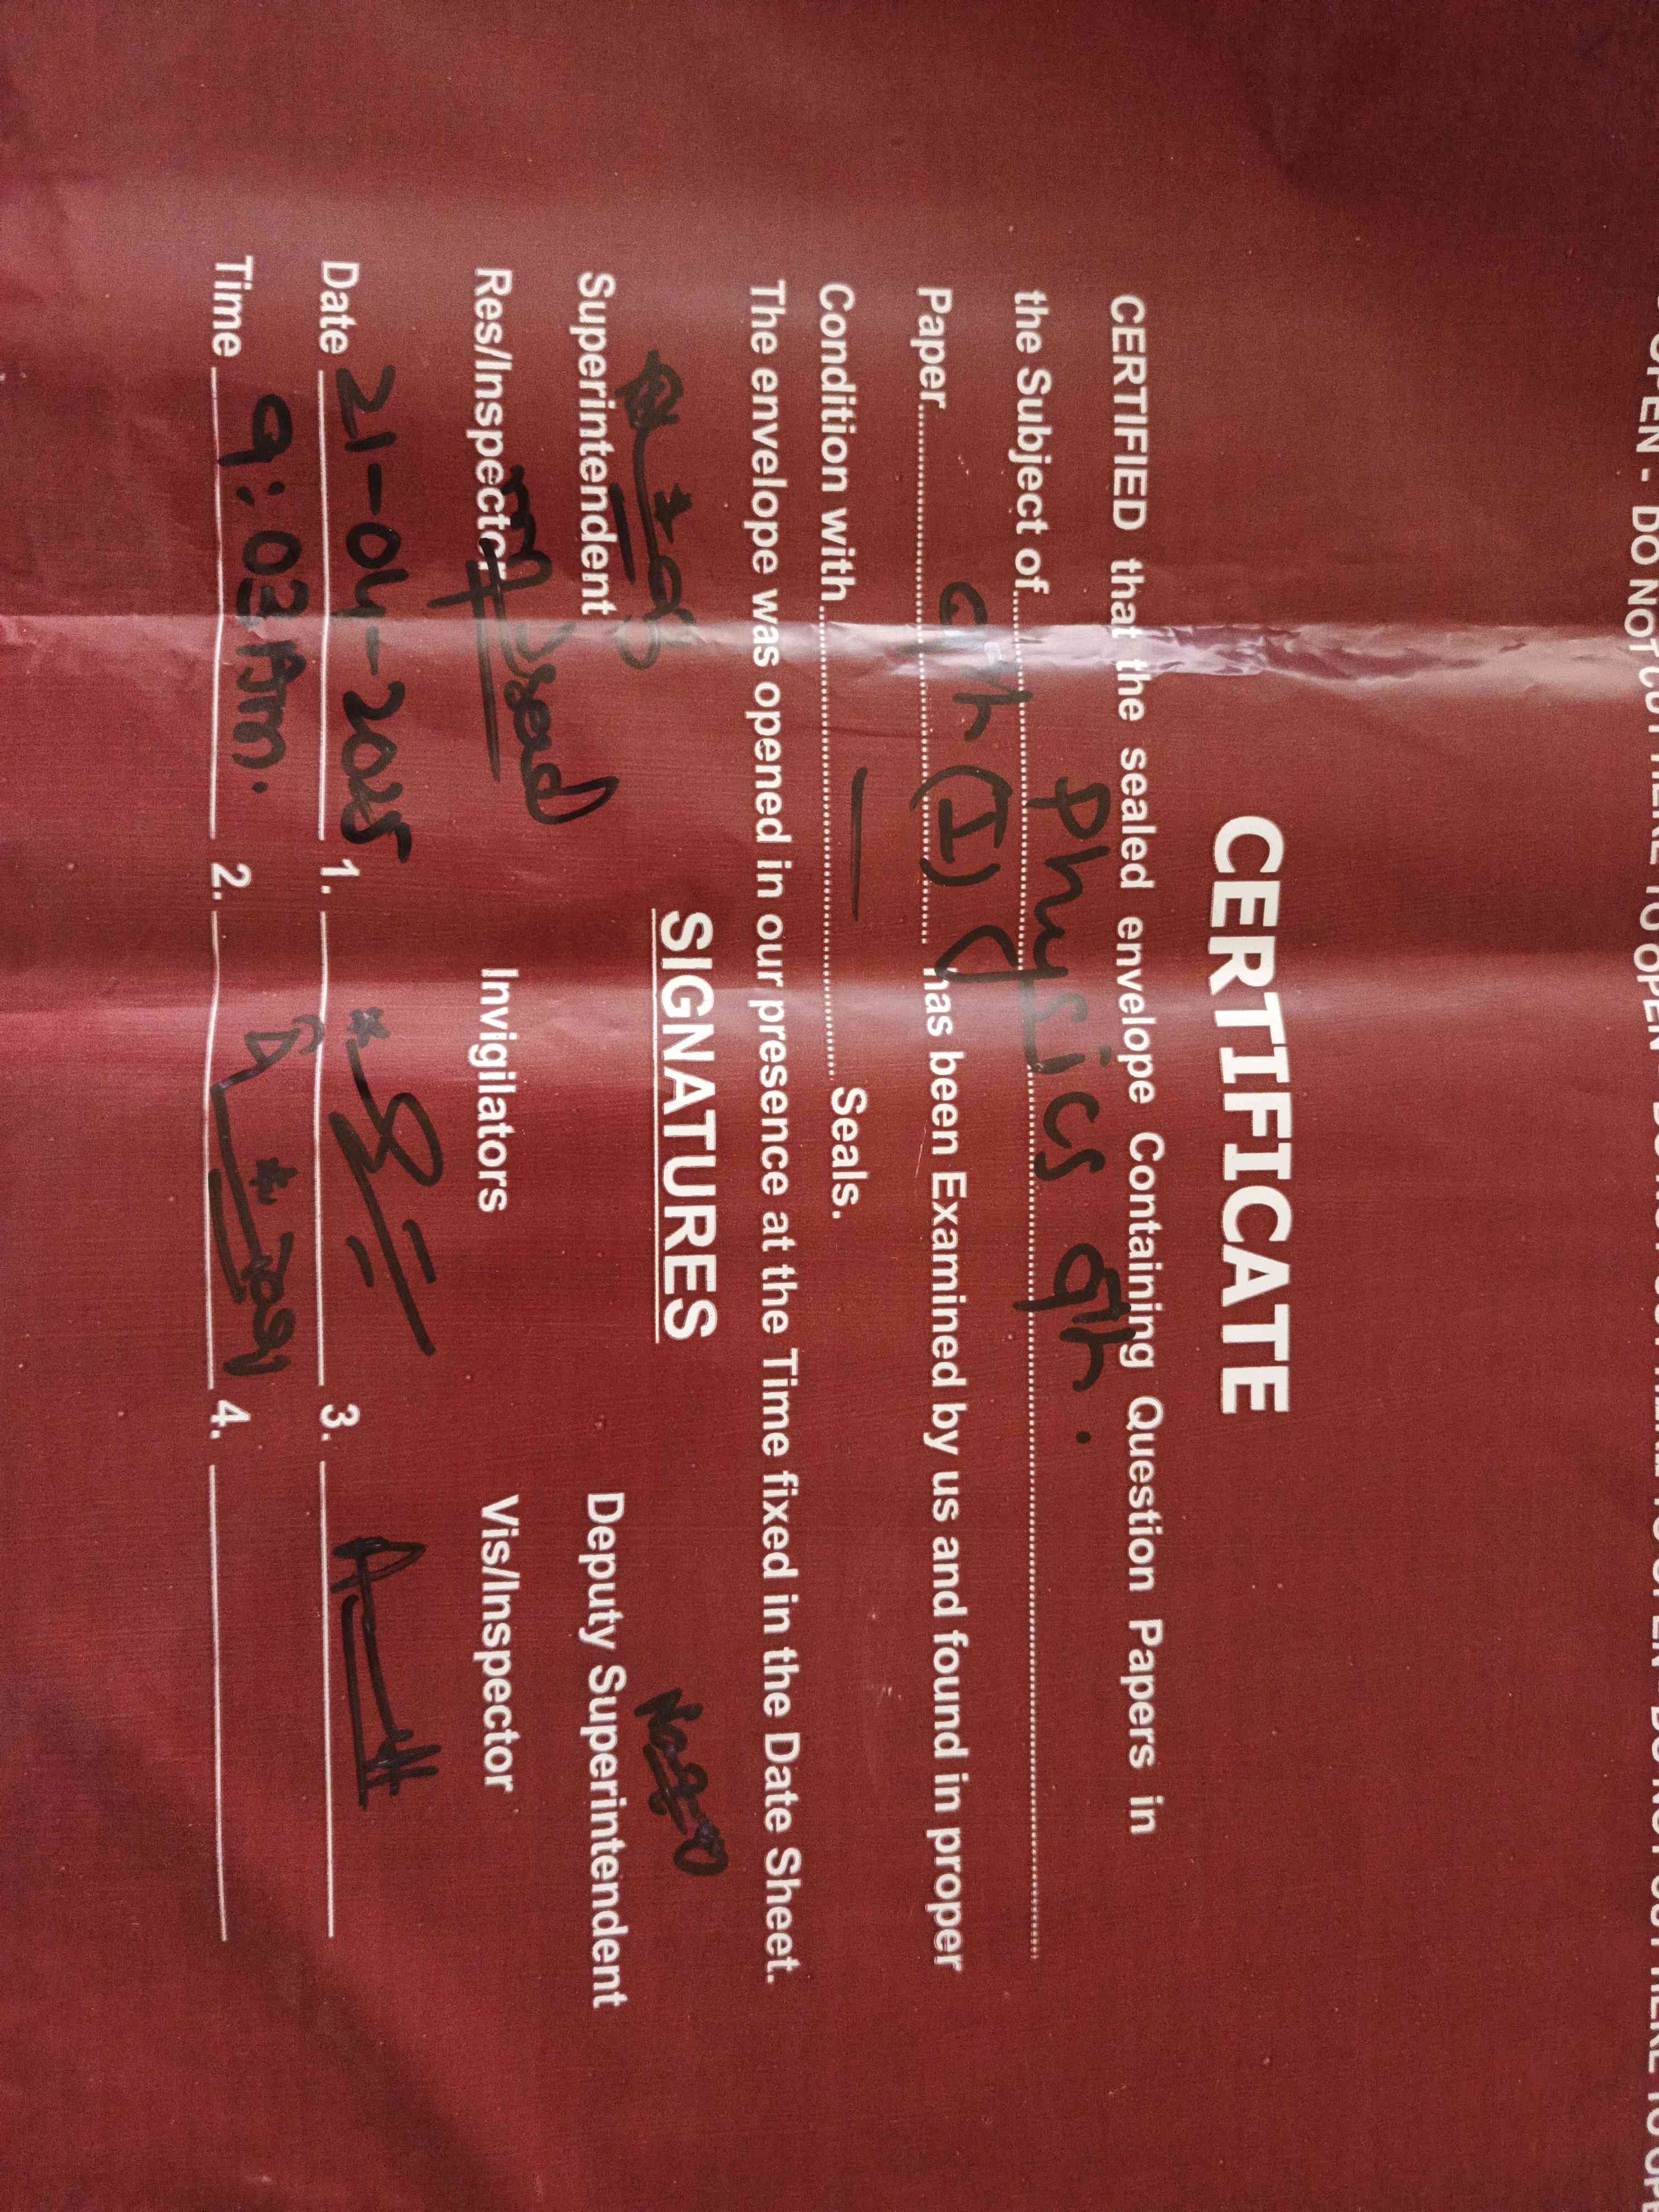 OPEN - DO NOT CUT HERE TO OPEN - DO NOT CUT HERE TO OPEN - DO NOT CUT HERE TO OPE
CERTIFICATE
CERTIFIED that the sealed envelope Containing Question Papers in
the Subject of Physics 9th.
Paper (I) has been Examined by us and found in proper
Condition with — Seals.
The envelope was opened in our presence at the Time fixed in the Date Sheet.
SIGNATURES
Superintendent Deputy Superintendent
Res/Inspector Invigilators Vis/Inspector
Date 21-04-2025 1. 3.
Time 9:03 Am. 2. 4.